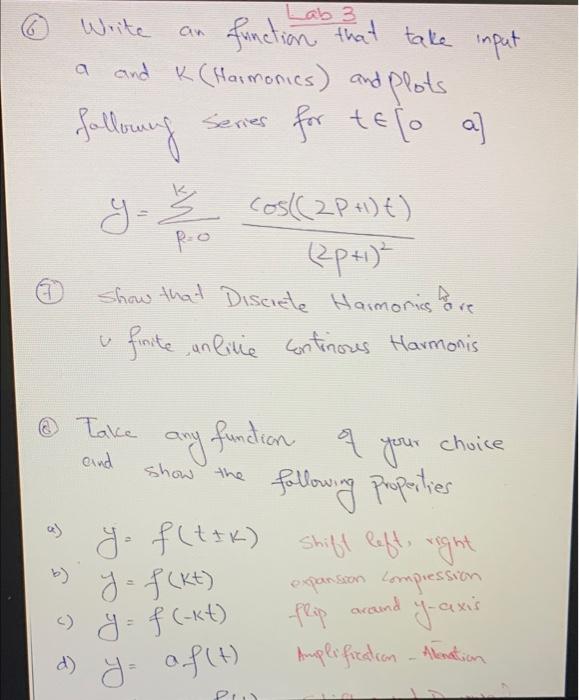 Lab 3
⑥ Write an function that take input
a and K (Harmonics) and plots
following series for t ∈ [0 a]
y = Σ_{p=0}^{K} cos((2p+1)t) / (2p+1)²
⑦ show that Discrete Harmonics are
finite, unlike continous Harmonis
⑧ Take any function of your choice
and show the following properties
a) y = f(t±K) shift left, right
b) y = f(Kt) expansion compression
c) y = f(-Kt) flip around y-axis
d) y = a f(t) Amplification -